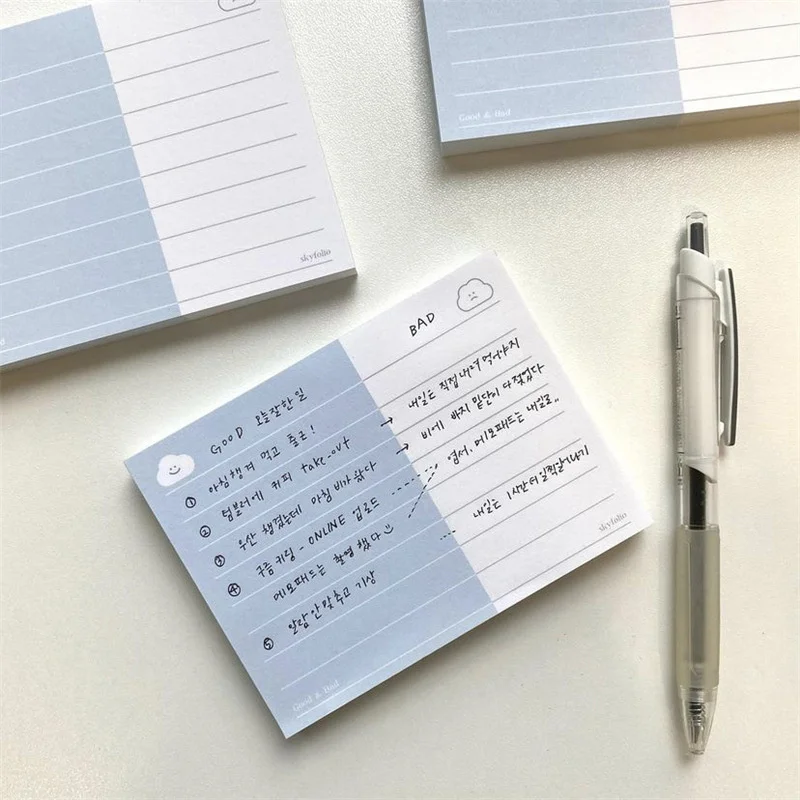 Good & Bad
skyfolio
BAD
GOOD 오늘 잘한 일
① 아침 챙겨 먹고 출근!
② 텀블러에 커피 take-out → 내일은 직접 내려 먹어야지
③ 우산 챙겼는데 마침 비가 왔다 → 비에 바지 밑단이 다 젖었다
④ 구름키링 - ONLINE 업로드 엽서, 메모패드는 내일로..
메모패드는 촬영했다
⑤ 알람 안 맞추고 기상 내일은 1시간 더 일찍 일어나기
skyfolio
Good & Bad